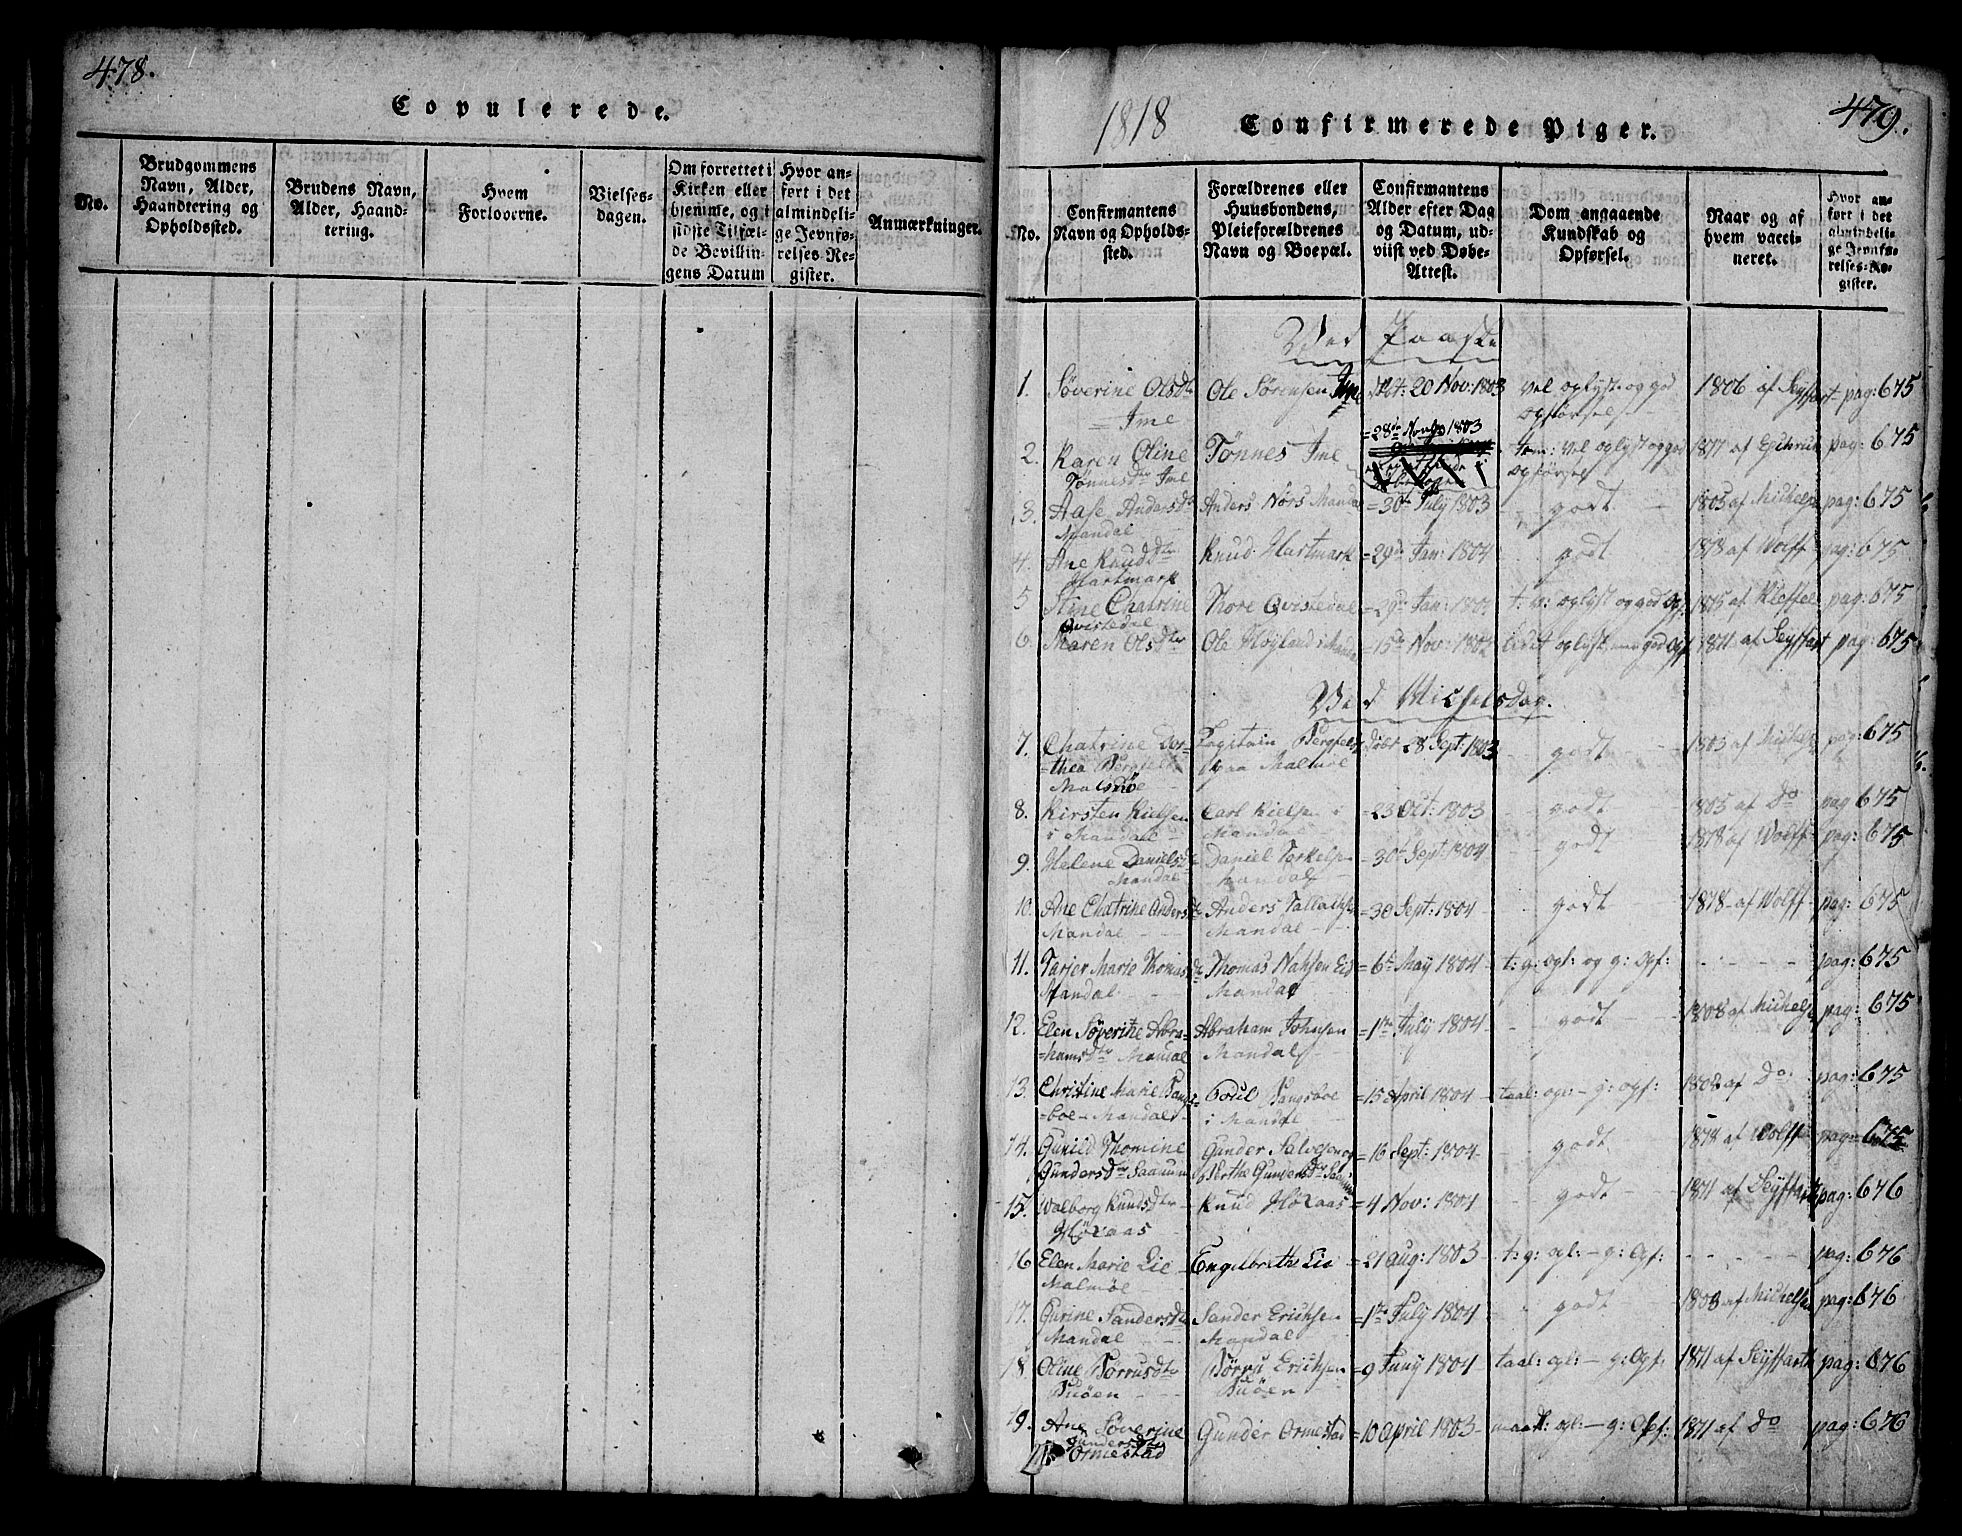 478.
Copulerede.
No.
Brudgommens Navn, Alder, Haandtering og Opholdssted.
Brudens Navn, Alder, Haandtering.
Hvem Forloverne.
Vielsesdagen.
Om forrettet i Kirken eller hiemme, og i sidste Tilfælde Bevillingens Datum
Hvor anført i det almindelige Jevnførelses-Register.
Anmærkninger.
1818
Confirmerede Piger.
479.
No.
Confirmantens Navn og Opholdssted.
Forældrenes eller Huusbondens, Pleieforældrenes Navn og Boepæl.
Confirmantens Alder efter Dag og Datum, udviist ved Døbe-Attest.
Dom angaaende Kundskab og Opførsel.
Naar og af hvem vaccineret.
Hvor anført i det almindelige Jevnførelses-Register.
Ved Paaske
1. Søverine Olsdr Ime Ole Sørensen Ime 20 Nov: 1803 vel oplyst og god opførsel 1806 af Seyffart pag: 675
2. Karen Oline Tønnesdr Ime Tønnes Ime = 28de Novbr 1803 vel oplyst og god opførsel pag: 675
3. Aase Andersdr Mandal Anders Mandal = 30te July 1803 godt 1805 af Michels pag: 675
4. Ane Knudsdtr Hartmark Knud Hartmark = 29de Jan: 1804 godt af Wolff pag: 675
5 Stine Chatrine Qvistedal Thore Qvistedal = 29de Jan: oplyst og god Opf: pag: 675
6. Maren Olsdtr Ole Høyland = 15de Nov: 1802 lidet oplyst, men god Opf: 1811 af Seyffart pag: 675
Ved Michelsdag.
7. Chatrine Dorthea Malmøe Capitain paa Malmøe døbt 28 Sept: 1803 godt 1805 pag: 675
8. Kirsten Kielsen i Mandal Carl Kielsen i Mandal = 23 Oct: 1803 godt 1805 af Do pag 675
9. Helene Danielsdr Mandal Daniel Torkelsen Mandal = 30te Sept: 1804 godt af Wolff pag: 675
10. Ane Chatrine Andersdr Mandal Anders Mandal = 30 Sept: 1804 godt af Wolff pag: 675
11. Tarjer Marie Thomasdr Mandal Thomas Mandal = 6te May 1804 t: g: opl: og g: Opf: pag: 675
12. Elen Søverine Abrahamsdtr Mandal Abraham Johnsen Mandal = 1ste July 1804 godt 1808 af Michels pag: 675
13. Christine Marie Bangsboe Mandal Poul Bangsboe i Mandal = 15 April 1804 taal: opl: – g: opf: af Do pag: 675
14. Gunild Thomine Gundersdtr Saanum Gunder Salvesen og Berthe Gundersdr = 16 Sept: 1804 godt af Wolff pag: 675
15. Walborg Knudsdtr Høxaas Knud Høxaas = 4 Nov: 1804 godt 1811 af Seyffarth pag: 676
16 Elen Marie Lie Malmøe Engelbreth Lie = 21 Aug: 1803 t: g: opl: – g: Opf: pag: 676
17. Gurine Sandersdr Mandal Sander Erichsen Mandal = 1ste July 1804 godt 1808 af Michelsen pag: 676
18 Oline Børrusdtr Buøen Børru Erichsen Buøen = 9 Juny 1804 taal: opl: – g: Opf: 1811 af Seyffarth pag: 676
19. Ane Søverine Gundersdr Ormestad Gunder Ormestad = 10 April 1803 maad: opl: – g: Opf: 1811 af Do pag: 676